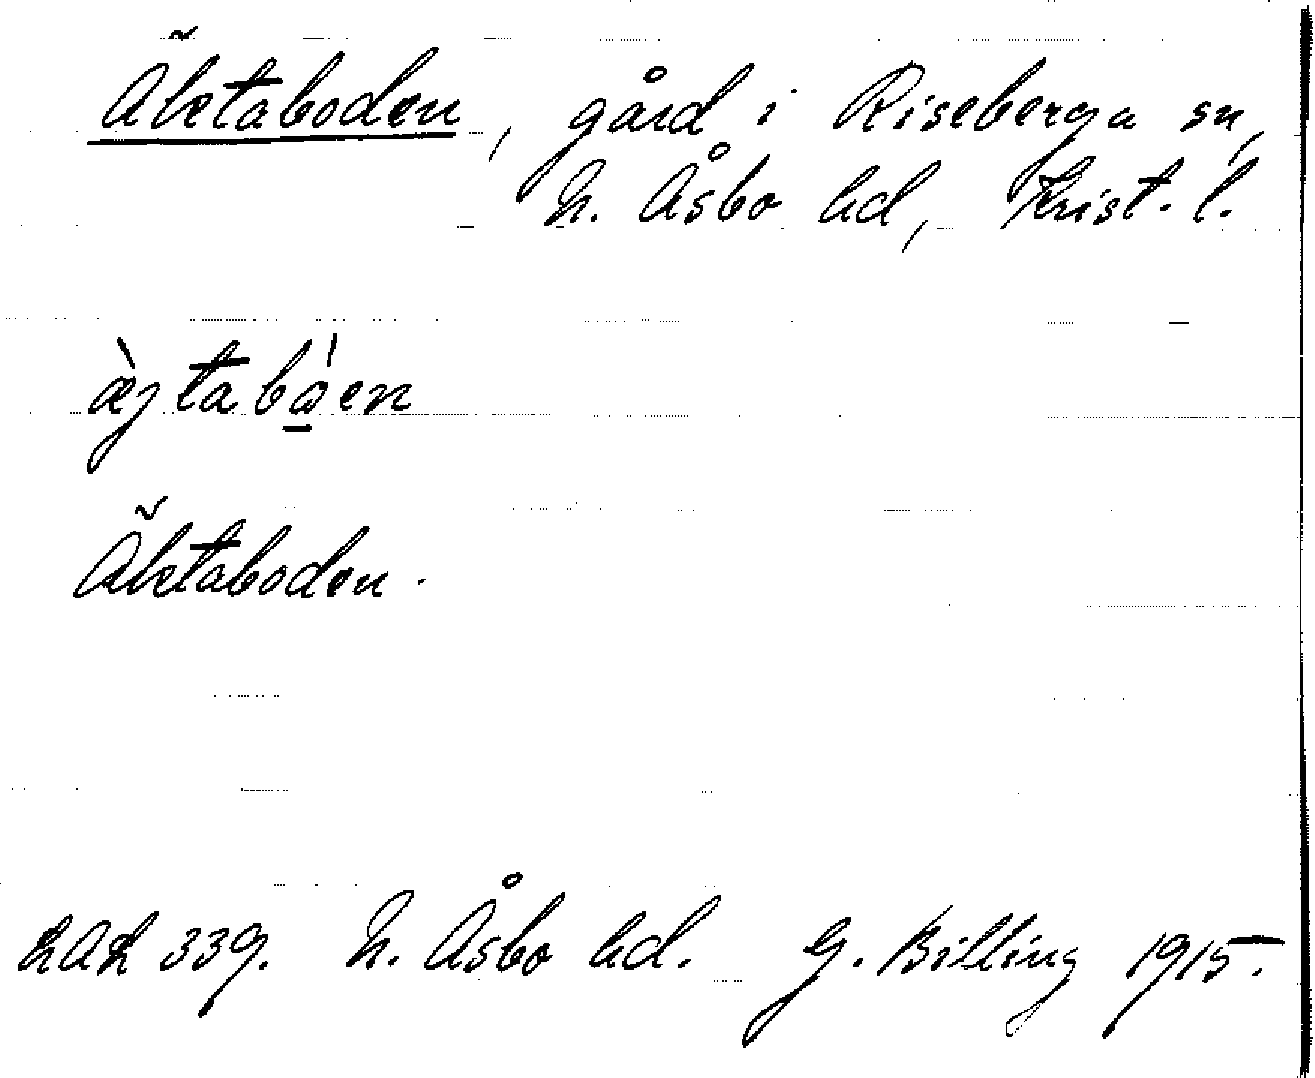 Äktaboden, gård i Riseberga sn,
N. Åsbo hd, Krist. l.
æ̀jtabá̱en
Äktaboden.
LAL 339. N. Åsbo hd. G. Billing 1915.